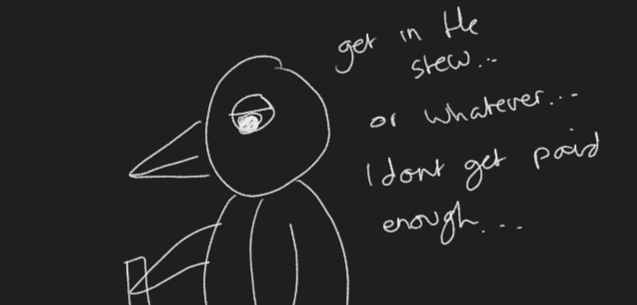 get in the
stew...
or whatever...
I dont get paid
enough...